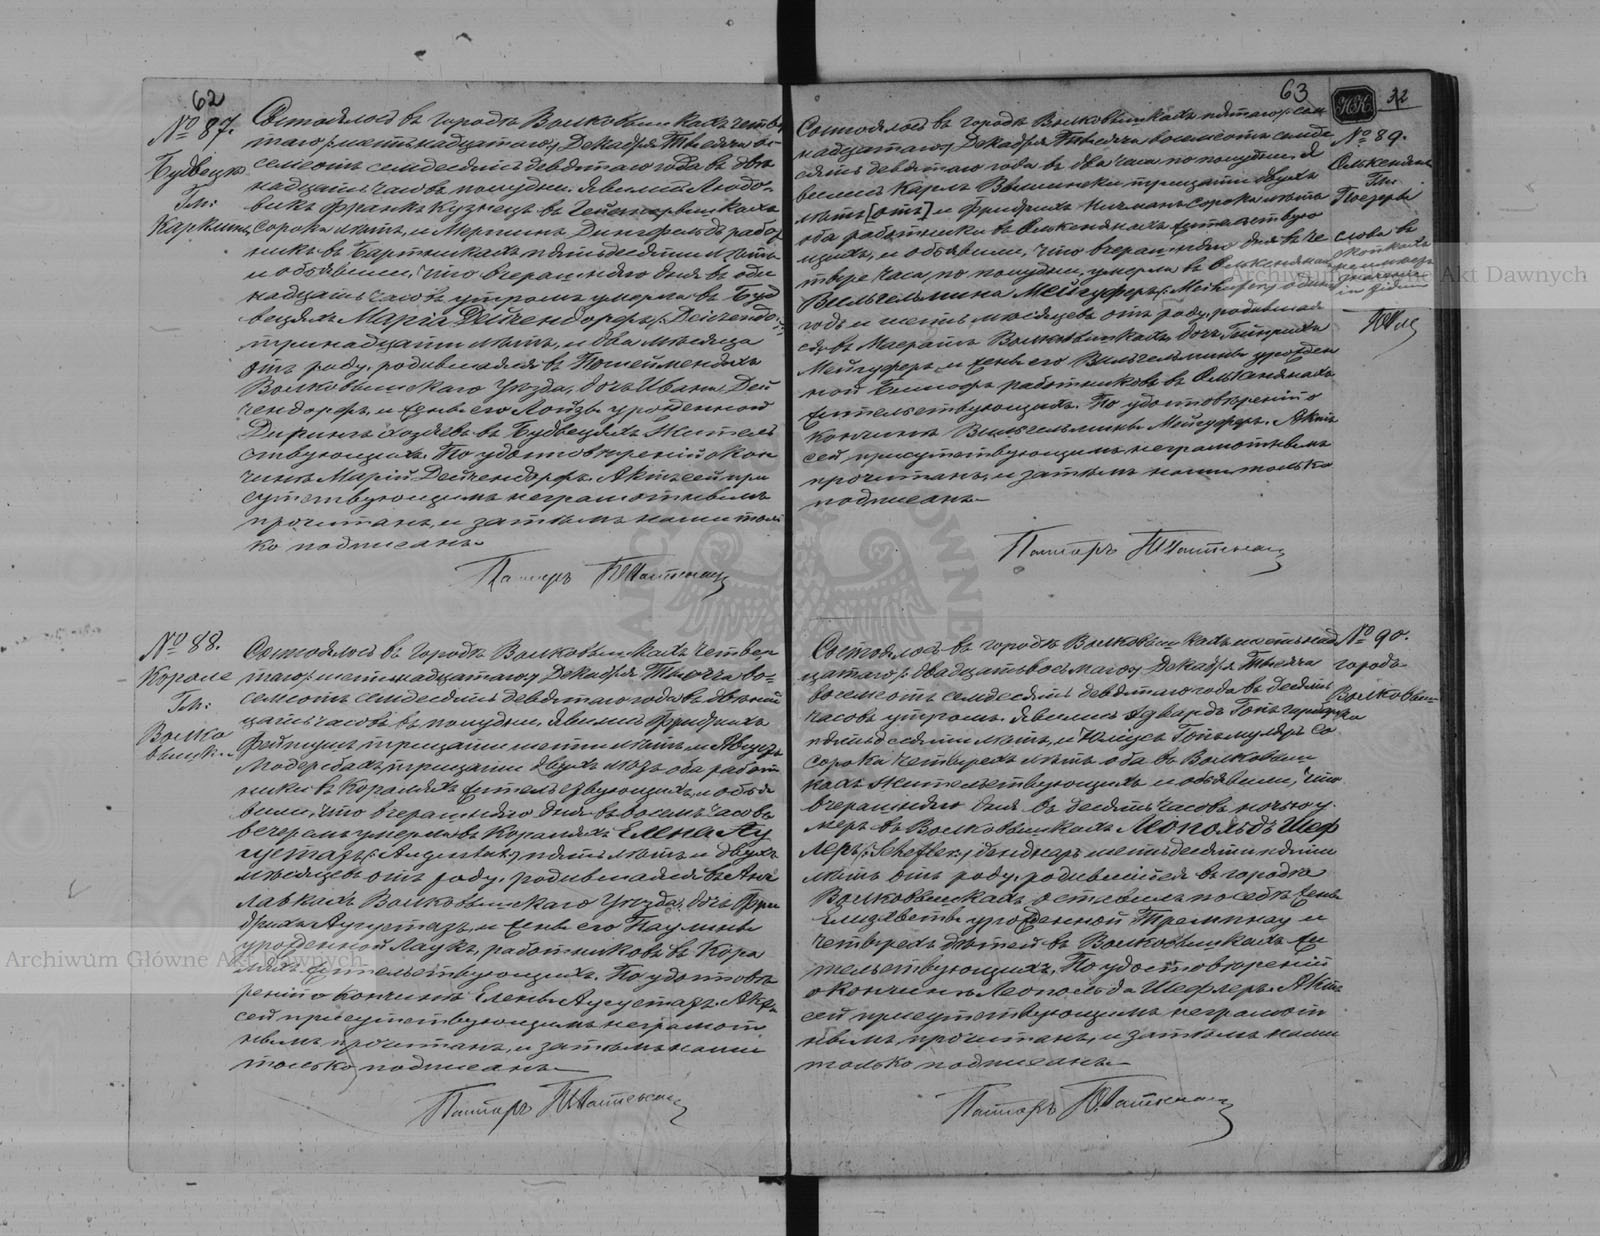 62
№ 87.
Будвецк
Гм:
Карклин
Состоялось в городѣ Волковышкахъ четвер
таго /: шестьнадцатаго :/ Декабря Тысяча во-
семсотъ семдесятъ девятаго года въ двѣ
надцать часовъ полудни. Явились Людо-
викъ Франкъ кузнецъ въ
сорока лѣтъ, и Мертинъ Дингфельдъ работ
никъ въ Бартникахъ пятьдесяти лѣтъ
и объявили, что вчерашняго дня въ оди
надцать часовъ утромъ умерла въ Буд
вецяхъ Марiя Дейчендорфъ /: Deiczendorf
тринадцати лѣтъ, и два мѣсяца
отъ роду, родившаяся въ Пошейменяхъ
Волковышскаго Уѣзда, дочь Ивана Дей
чендорфъ, и жены его Лойзы урожденной
Дирингъ хозяевъ въ Будвецяхъ жител
ствующихъ. По удостовѣренiи о кон
чинѣ Марiи Дейчендорфъ. Актъ сей при
сутствующимъ неграмотнымъ
прочитанъ, и затѣмъ нами толь
ко подписанъ.
Пасторъ
№ 88.
Короле
Гм:
Волко
вышки.
Состоялось въ городѣ Волковышкахъ четвер
таго /: шестьнадцатаго :/ Декабря Тысяча во-
семсотъ семдесятъ девятаго года въ двѣнад
цать часовъ въ полудни. Явились Фридрихъ
тридцати шести лѣтъ, и Августъ
тридцати двухъ лѣтъ оба работ
ники въ Короляхъ жительствующiе, и объя
вили, что вчерашняго дня въ восемъ часовъ
вечеромъ умерла въ Короляхъ Елена Ау
густатъ /: Augustat :/ пять лѣтъ и двухъ
мѣсяцевъ отъ роду, родившаяся въ
Волковышскаго Уѣзда, дочь Фри
дриха Аугустатъ, и жены его Паулины
урожденной Лаукъ, работниковъ въ Коро
ляхъ жительствующихъ. По удостовѣ
ренiи о кончинѣ Елены Аугустатъ. Актъ
сей присутствующимъ неграмот
нымъ прочитанъ, и затѣмъ нами
только подписанъ.
Пасторъ
63
32
№ 89.
Олькеняны
Гм:
Поезоры
слова въ
Состоялось въ городѣ Волковышкахъ пятаго /: сем
надцатаго :/ Декабря Тысяча восемсотъ семде
сятъ девятаго года въ два часа по полудни. Я
вились Карлъ тридцати двухъ
лѣтъ [отъ] и Фридрихъ сорока лѣтъ
оба работники въ Олькенянахъ жительствую
щихъ, и объявили, что вчерашняго дня въ че
твере часа, по полудни, умерла въ Олькенянахъ
Вильгельмина Мейгуферъ /: Meihufer :/ одинъ
годъ и шесть мѣсяцевъ отъ роду, родившая
ся въ Волковышкахъ, дочь Гейнриха
Мейгуферъ, и жены его Вильгельмины урожден
ной работниковъ въ Олькенянахъ
жительствующихъ. По удостовѣренiи о
кончинѣ Вильгельмины Мейгуферъ. Актъ
сей присутствующимъ неграмотнымъ
прочитанъ, и затѣмъ нами только
подписанъ.
Пасторъ
№ 90.
городъ
Волковыш-
ки
Состоялось въ городѣ Волковышкахъ шестьнад
цатаго /: двадцатьвосьмаго :/ Декабря Тысяча
восемсотъ семдесятъ девятаго года въ десять
часовъ утромъ. Явились Эдвардъ
пятьдесяти лѣтъ, и Юлiусъ со
сорока четырехъ лѣтъ оба въ Волковыш
кахъ жительствующихъ и объявили, что
вчерашняго дня въ десять часовъ ночью у
меръ въ Волковышкахъ Леопольдъ Шеф
леръ /: Scheffler :/ шестьдесяти пяти
лѣтъ отъ роду, родившiйся въ городѣ
Волковышкахъ, оставилъ по себѣ жену
Елизаветы урожденной Тремпнау и
четырехъ дѣтей въ Волковышкахъ жи
тельствующихъ. По удостовѣренiи
о кончинѣ Леопольда Шефлеръ. Актъ
сей присутствующимъ неграмот
нымъ прочитанъ, и затѣмъ нами
только подписанъ.
Пасторъ
Archiwum Główne Akt Dawnych
Archiwum Główne Akt Dawnych